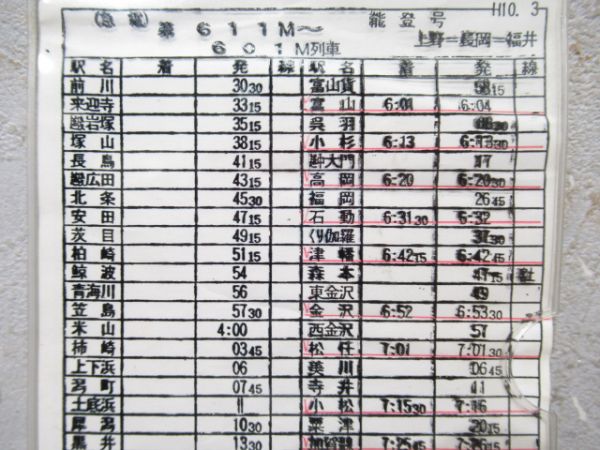 H10. 3
(急電) 第611M〜 能登号
601M列車 上野=長岡=福井
駅名 着 発 線 駅名 着 発 線
前川 30 30 富山貨 15
来迎寺 33 15 富山 6:01 6:04
岩塚 35 15 呉羽 30
塚山 38 15 小杉 6:13 6:13 30
長鳥 41 15 大門 17
広田 43 15 高岡 6:20 6:20 30
北条 45 30 福岡 26 45
安田 47 15 石動 6:31 30 6:32
茨目 49 15 くり伽羅 30
柏崎 51 15 津幡 6:42 15 6:42 45
鯨波 54 森本 47 15
青海川 56 東金沢 49
笠島 57 30 金沢 6:52 6:53 30
米山 4:00 西金沢 57
柿崎 03 45 松任 7:01 7:01 30
上下浜 06 美川 06 45
潟町 07 45 寺井 11
土底浜 11 小松 7:15 30 7:16
犀潟 10 30 粟津 20 15
黒井 13 30 加賀 7:25 45 7:26 15